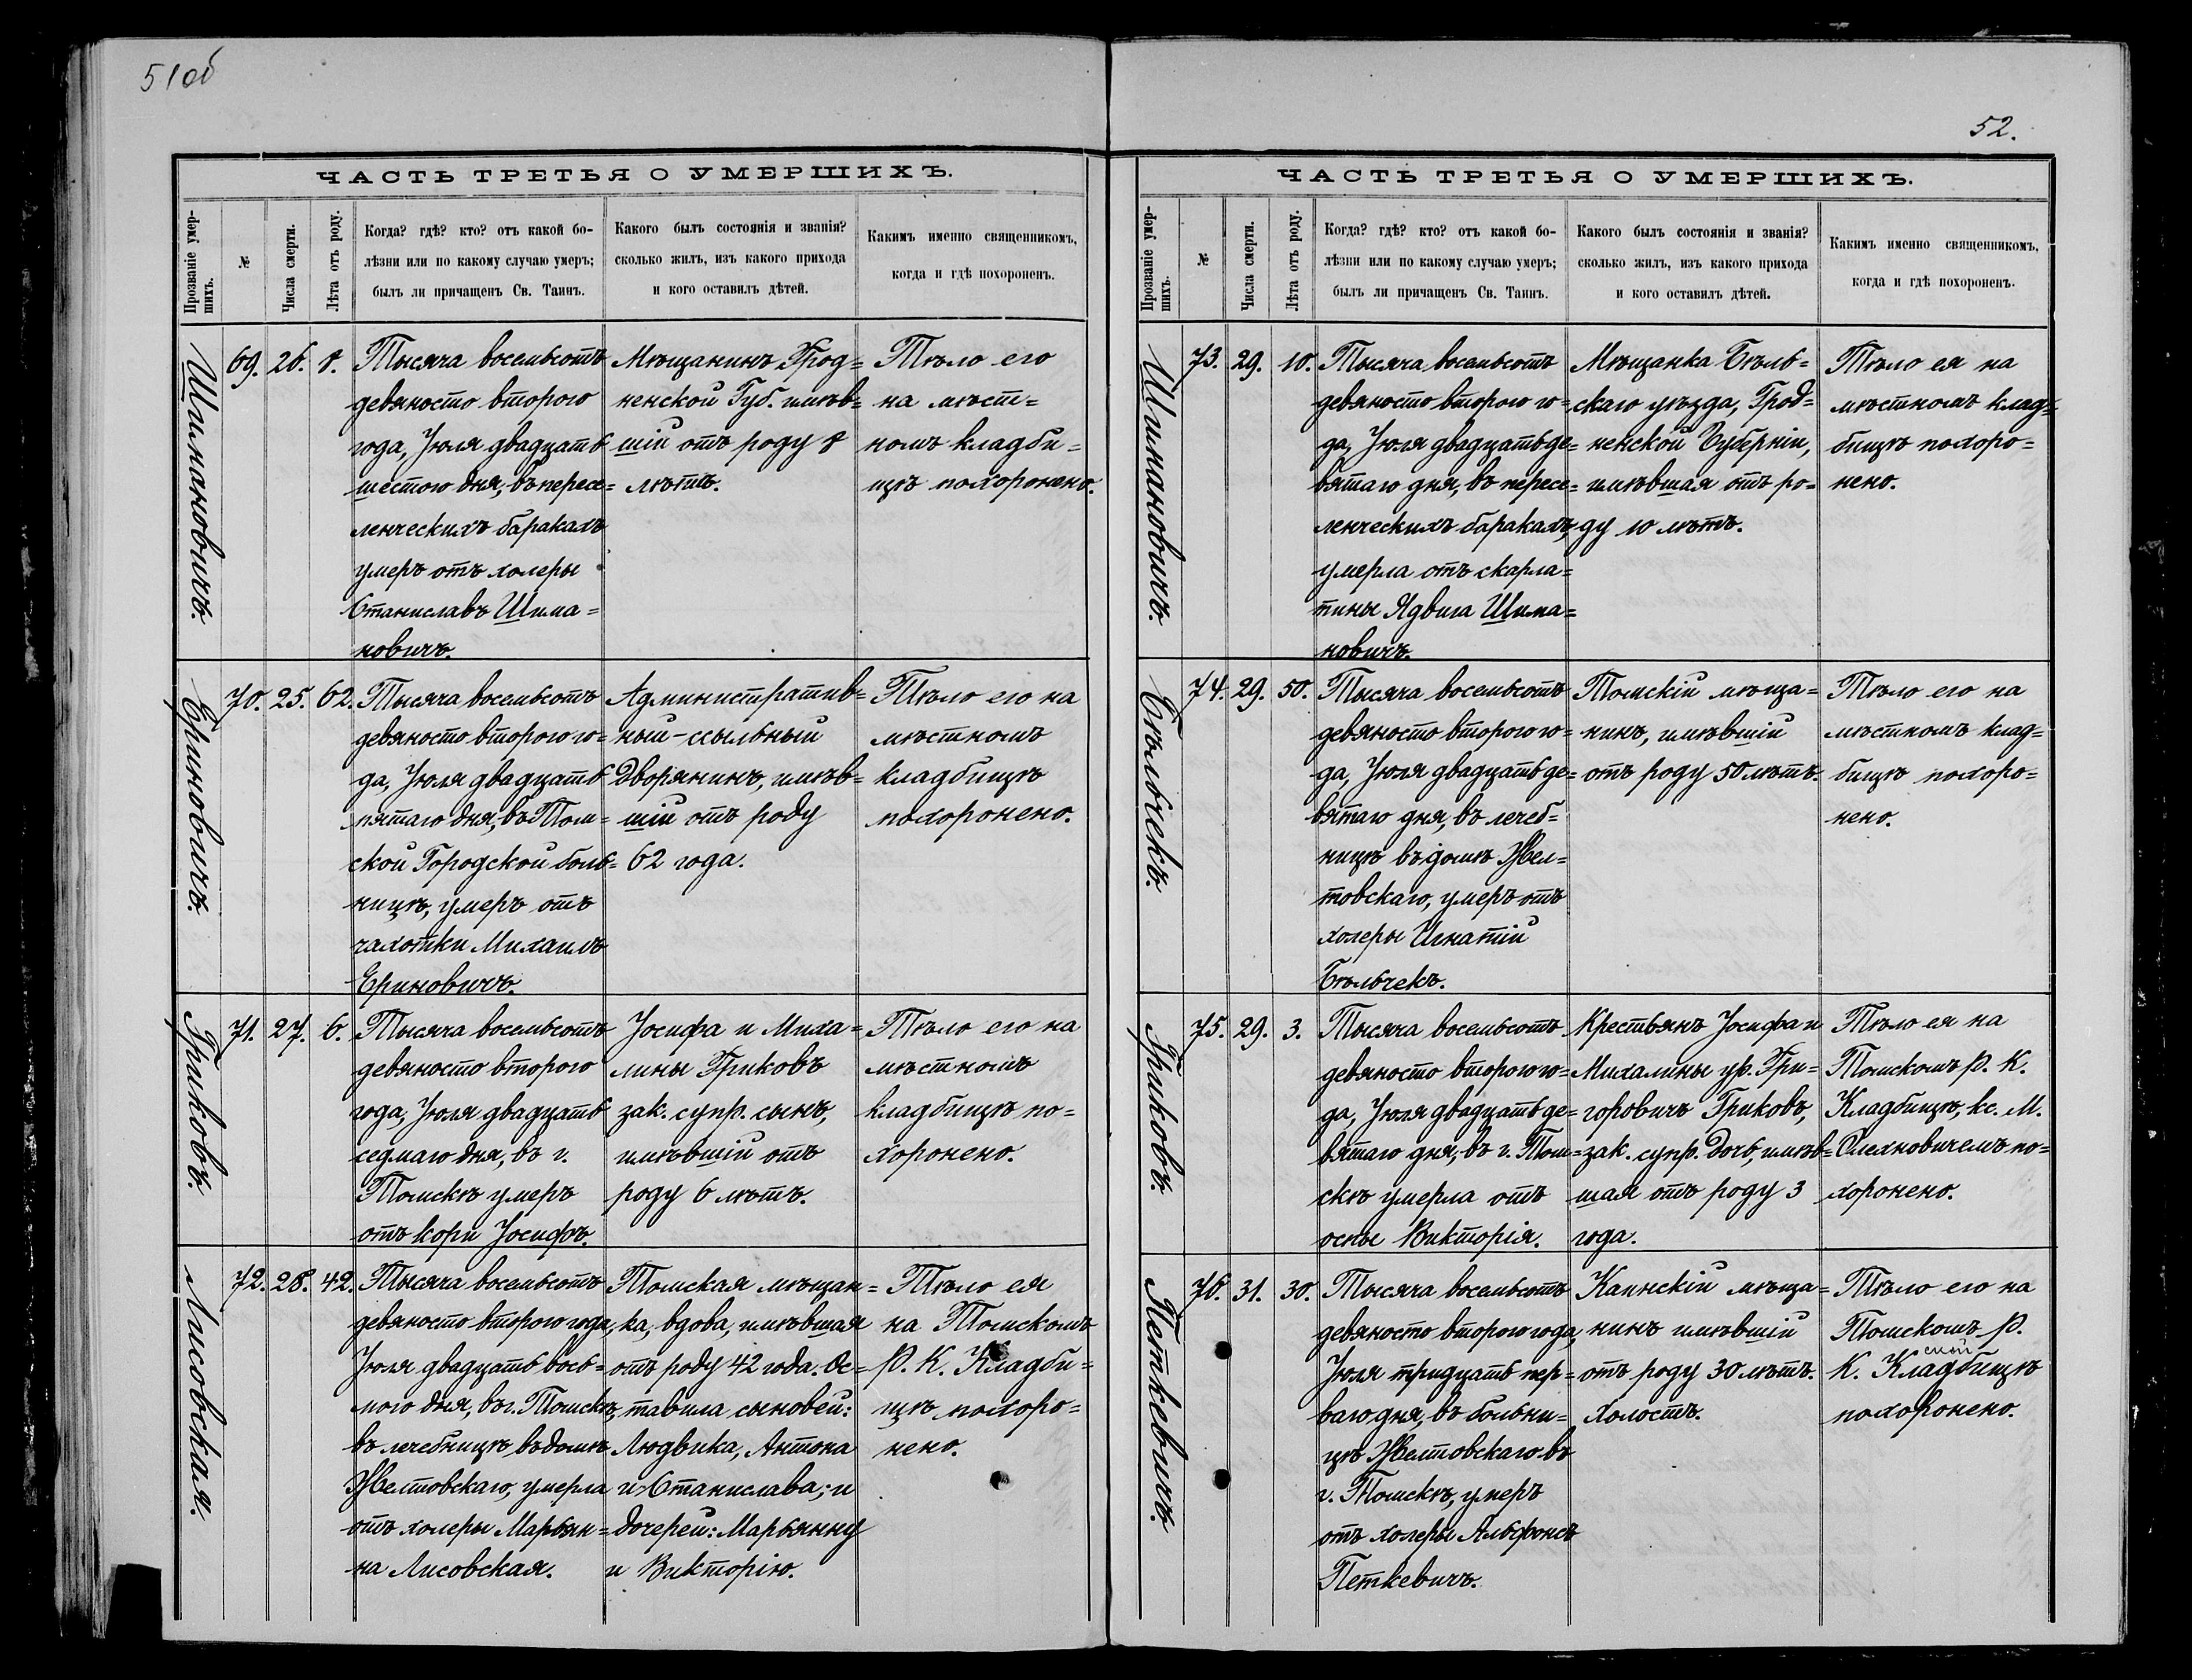 51об
ЧАСТЬ ТРЕТЬЯ О УМЕРШИХЪ.
Прозваніе умер-
шихъ.
№
Числа смерти.
Лѣта отъ роду.
Когда? гдѣ? кто? отъ какой бо-
лѣзни или по какому случаю умеръ;
былъ ли причащенъ Св. Таинъ.
Какого былъ состоянія и званія?
сколько жилъ, изъ какого прихода
и кого оставилъ дѣтей.
Какимъ именно священникомъ,
когда и гдѣ похороненъ.
Шимановичъ.
69.
26.
8.
Тысяча восемьсотъ
девяносто второго
года, Іюля двадцать
шестого дня, въ пересе=
ленческихъ баракахъ
умеръ отъ холеры
Станиславъ Шима=
новичъ.
Мѣщанинъ Грод=
ненской Губ. имѣв=
шій отъ роду 8
лѣтъ.
Тѣло его
на мѣст=
номъ кладби=
щѣ похоронено.
Ериновичъ.
70.
25.
62.
Тысяча восемьсотъ
девяносто второго го=
да, Іюля двадцать
пятаго дня, въ Том=
ской Городской боль=
ницѣ, умеръ отъ
чахотки Михаилъ
Ериновичъ.
Административ=
ный-ссыльный
Дворянинъ, имѣв=
шій отъ роду
62 года.
Тѣло его на
мѣстномъ
кладбищѣ
похоронено.
Гриковъ.
71.
27.
6.
Тысяча восемьсотъ
девяносто второго
года, Іюля двадцать
седмаго дня, въ г.
Томскѣ умеръ
отъ кори Іосифъ.
Іосифа и Миха=
лины Гриковъ
зак. супр. сынъ,
имѣвшій отъ
роду 6 лѣтъ.
Тѣло его на
мѣстномъ
кладбищѣ по=
хоронено.
Лисовская.
72.
28.
42.
Тысяча восемьсотъ
девяносто второго года,
Іюля двадцать вось=
мого дня, въ г. Томскѣ,
въ лечебницѣ въ домѣ
Желтовскаго, умерла
отъ холеры Марьян=
на Лисовская.
Томская мѣщан=
ка, вдова, имѣвшая
отъ роду 42 года. Ос=
тавила сыновей:
Людвика, Антона
и Станислава; и
дочерей: Марьянну
и Викторію.
Тѣло ея
на Томскомъ
Р. К. Кладби=
щѣ похоро=
нено.
52.
ЧАСТЬ ТРЕТЬЯ О УМЕРШИХЪ.
Прозваніе умер-
шихъ.
№
Числа смерти.
Лѣта отъ роду.
Когда? гдѣ? кто? отъ какой бо-
лѣзни или по какому случаю умеръ;
былъ ли причащенъ Св. Таинъ.
Какого былъ состоянія и званія?
сколько жилъ, изъ какого прихода
и кого оставилъ дѣтей.
Какимъ именно священникомъ,
когда и гдѣ похороненъ.
Шимановичъ.
73.
29.
10.
Тысяча восемьсотъ
девяносто второго го=
да, Іюля двадцать де=
вятаго дня, въ пересе=
ленческихъ баракахъ,
умерла отъ скарла=
тины Ядвига Шима=
новичъ.
Мѣщанка Бѣль=
скаго уѣзда, Грод=
ненской Губерніи,
имѣвшая отъ ро=
ду 10 лѣтъ.
Тѣло ея на
мѣстномъ клад=
бищѣ похоро=
нено.
Бѣльчекъ.
74.
29.
50.
Тысяча восемьсотъ
девяносто второго го=
да, Іюля двадцать де=
вятаго дня, въ лечеб=
ницѣ въ домѣ Жел=
товскаго, умеръ отъ
холеры Игнатій
Бѣльчекъ.
Томскій мѣща=
нинъ, имѣвшій
отъ роду 50 лѣтъ.
Тѣло его на
мѣстномъ клад=
бищѣ похоро=
нено.
Гриковъ.
75.
29.
3.
Тысяча восемьсотъ
девяносто второго го=
да, Іюля двадцать де=
вятаго дня, въ г. Том=
скѣ умерла отъ
оспы Викторія.
Крестьянъ Іосифа и
Михалины ур. Гри=
горовичъ Гриковъ,
зак. супр. дочь, имѣв=
шая отъ роду 3
года.
Тѣло ея на
Томскомъ Р. К.
Кладбищѣ, кс. М.
Олехновичемъ по=
хоронено.
Петкевичъ.
76.
31.
30.
Тысяча восемьсотъ
девяносто второго года,
Іюля тридцать пер=
ваго дня, въ больни=
цѣ Желтовскаго въ
г. Томскѣ, умеръ
отъ холеры Альфонсъ
Петкевичъ.
Каинскій мѣща=
нинъ имѣвшій
отъ роду 30 лѣтъ.
Холостъ.
Тѣло его на
Томскомъ Р.
К. Кладбищѣ
похоронено.